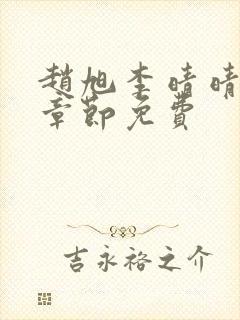 趙旭李晴晴
章節免費
吉永裕之介